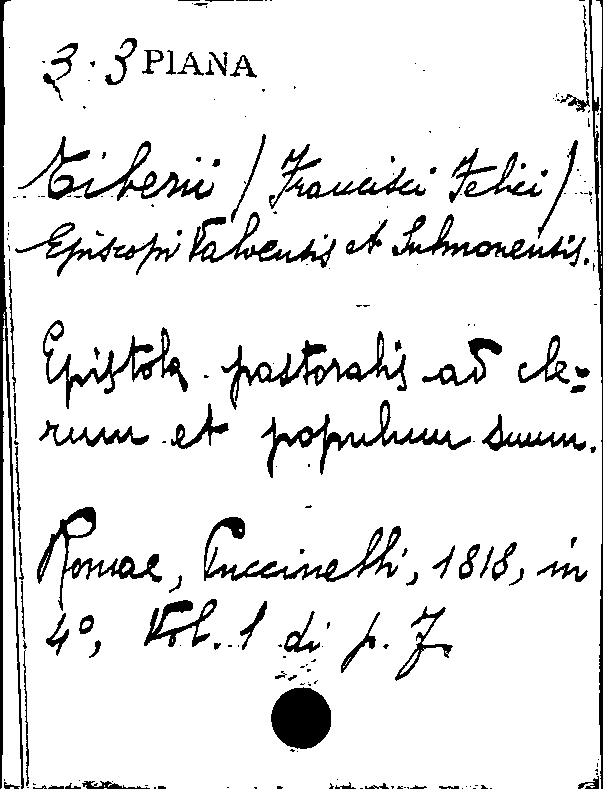 3. 3 PIANA
Tiberii / Francisci Felici /
Episcopi Valvensis et Sulmonensis.
Epistola pastoralis ad cle=
rum et populum suum.
Romae, Puccinelli, 1818, in
4º, Vol. 1 di p. 7.